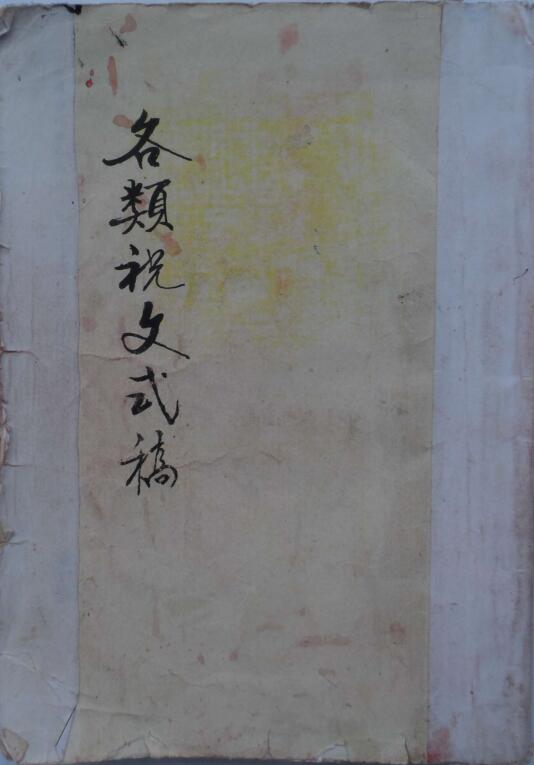 各類祝文式稿